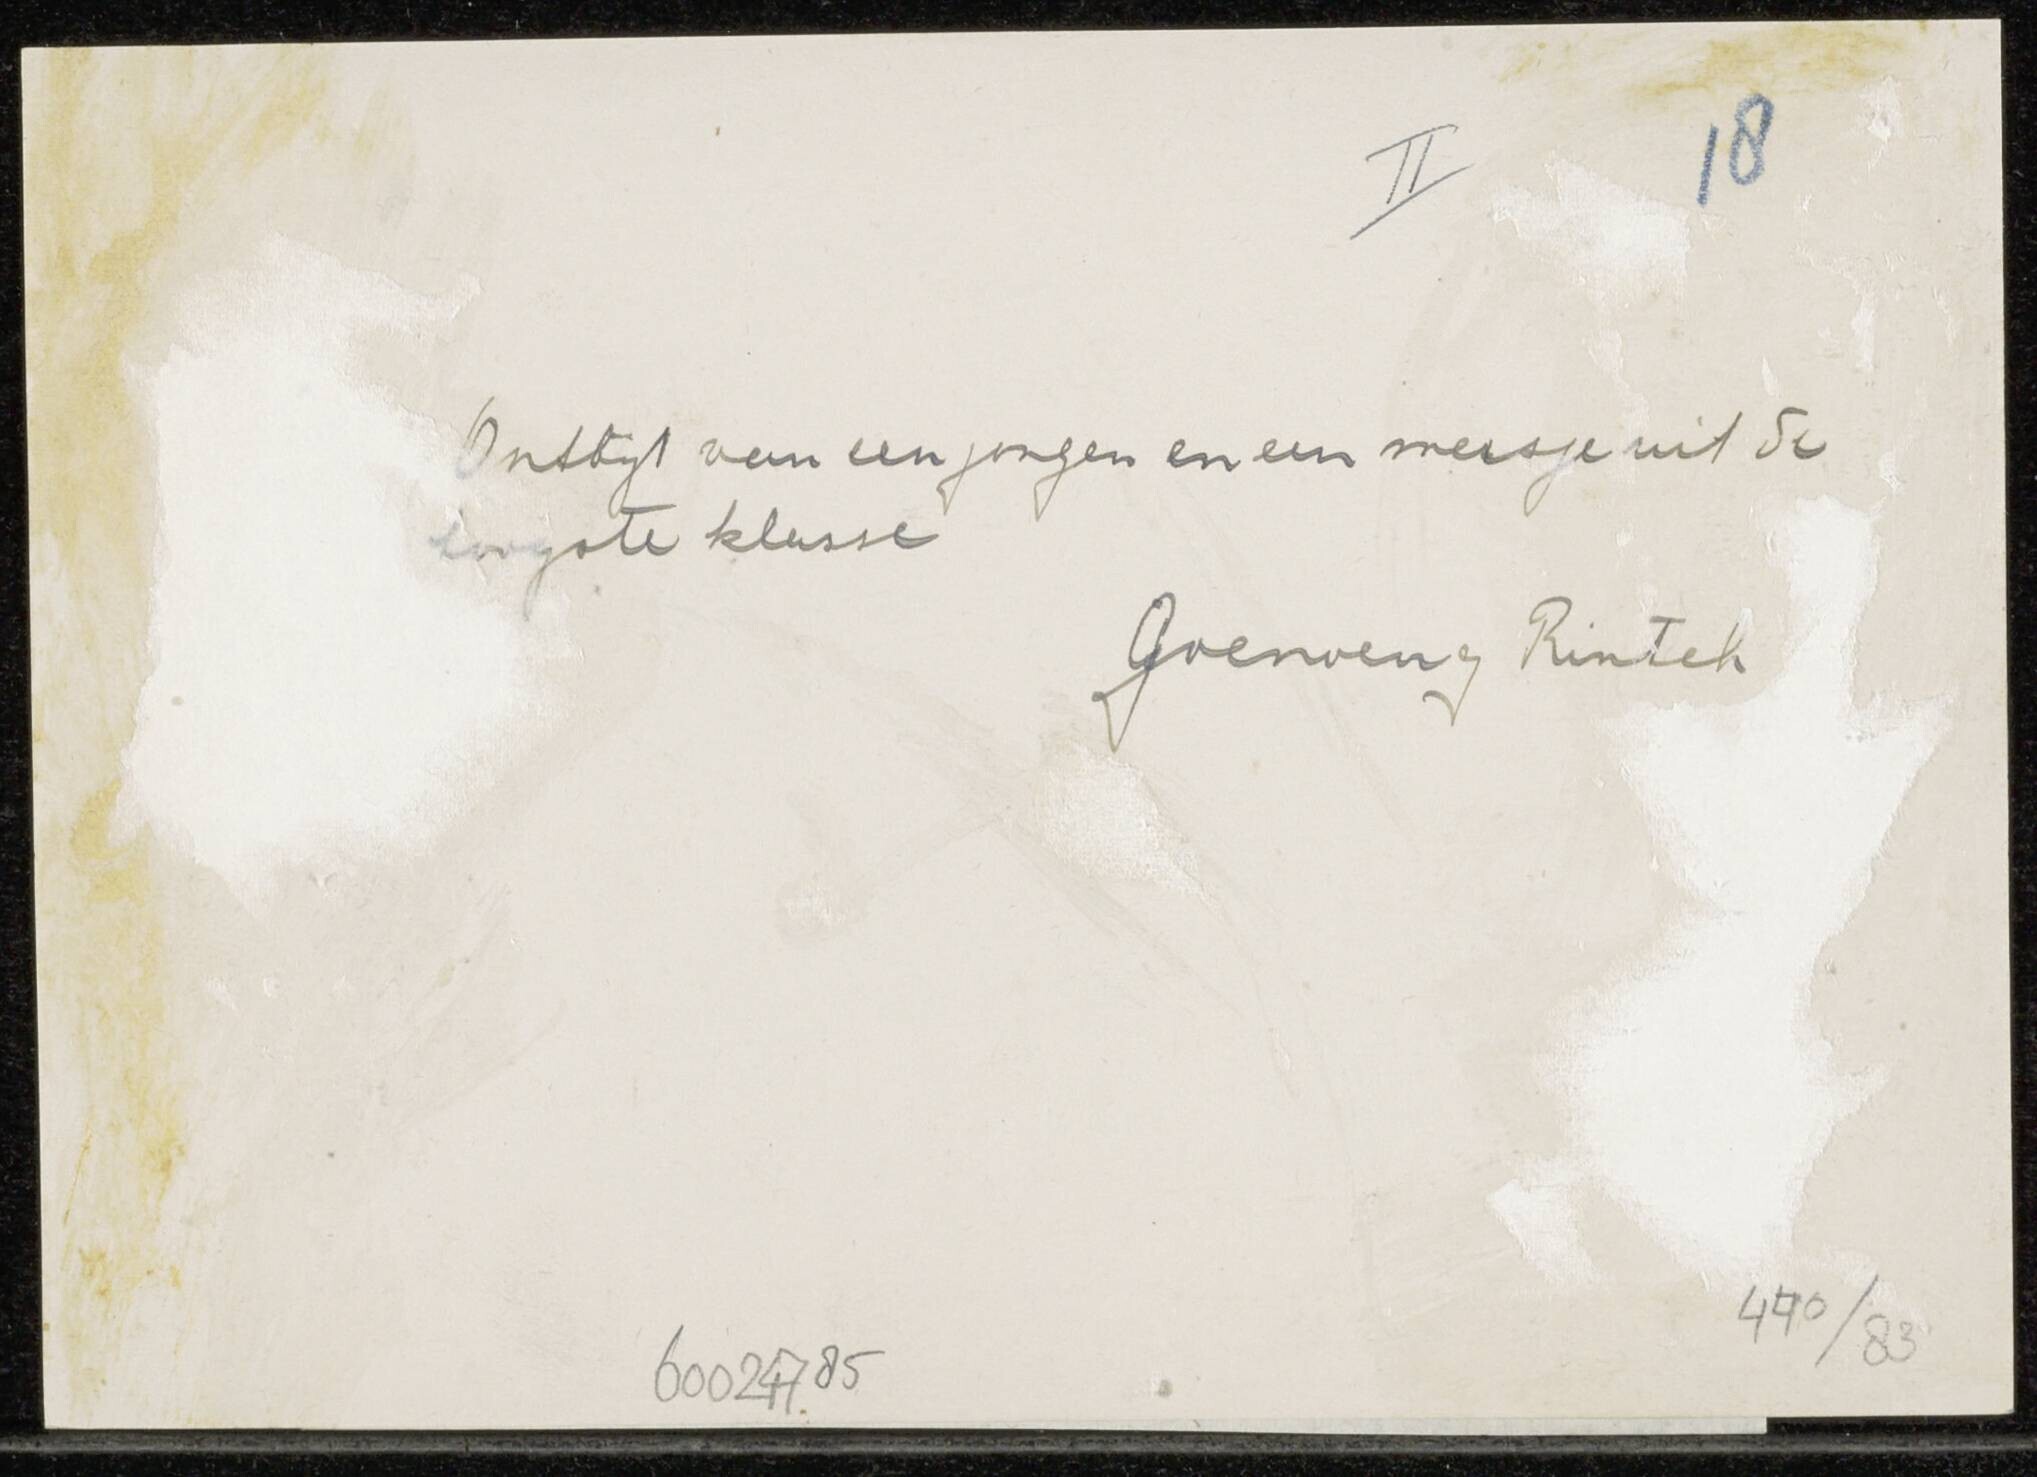 II
18
Ontbijt van een jongen en een meisje uit de
hoogste klasse
Goenoeng Rinteh
470/83
60024785